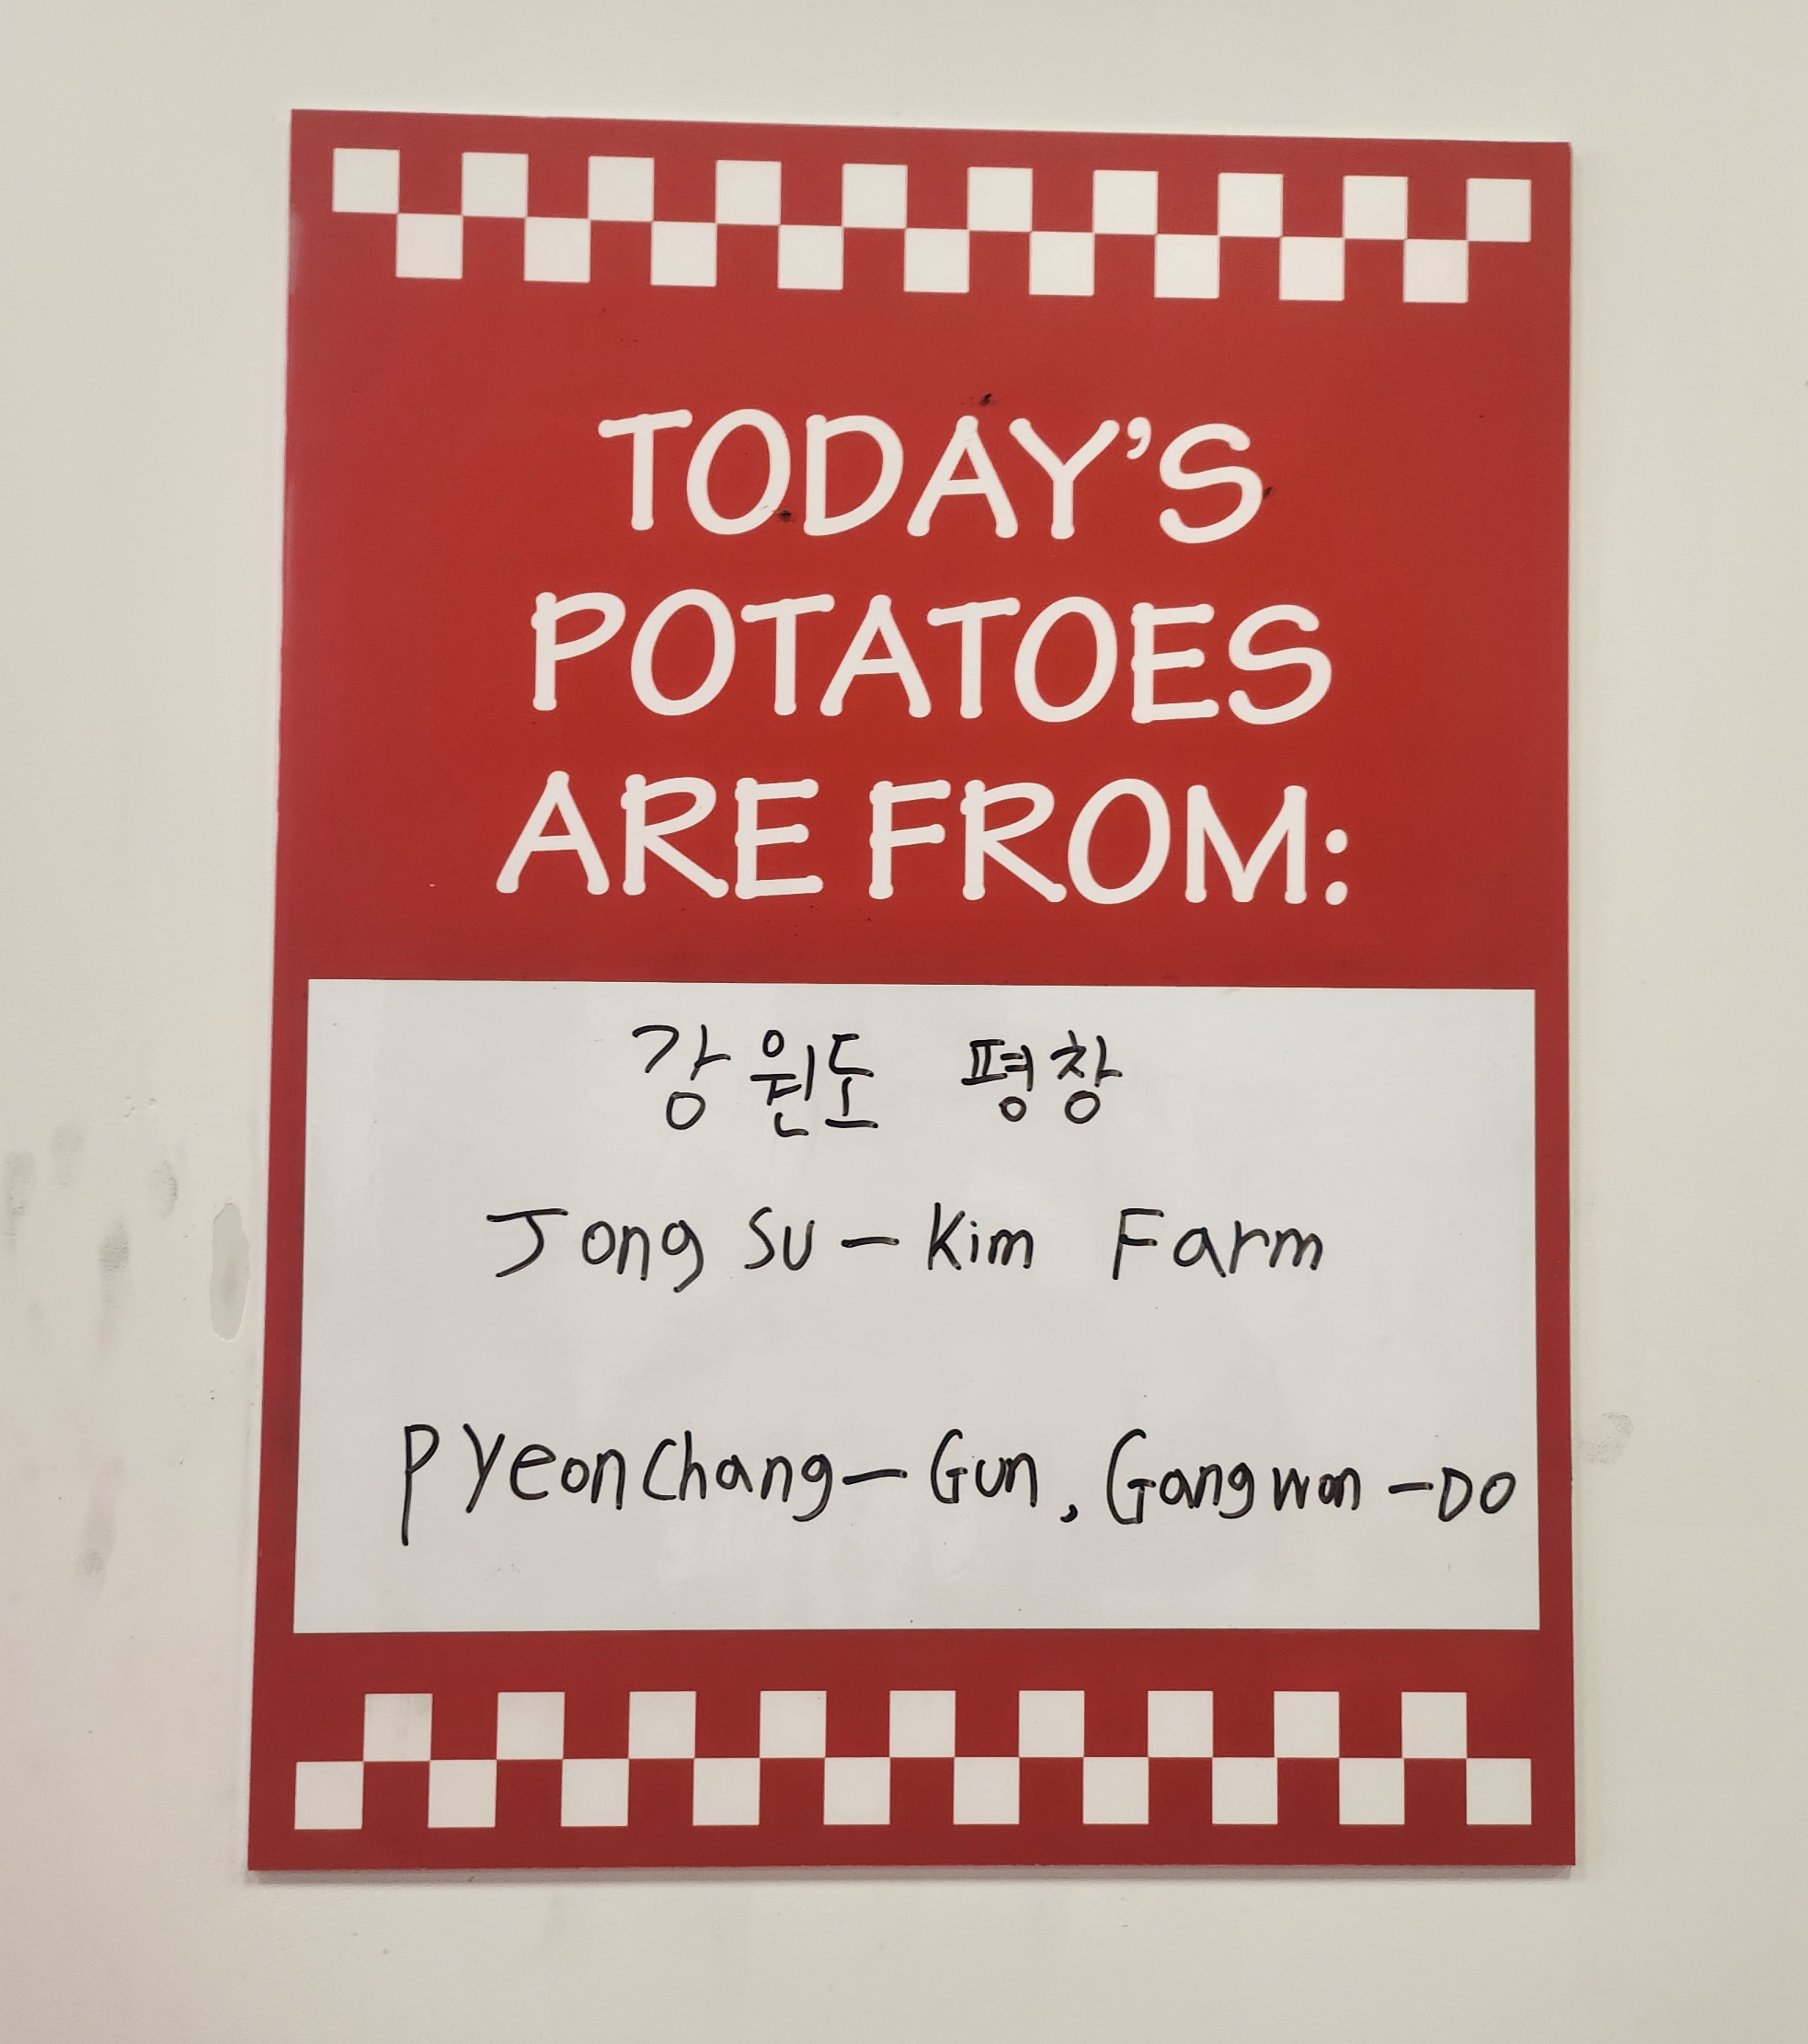 TODAY'S
POTATOES
ARE FROM:
강원도 평창
Jong SU - Kim Farm
PYeonChang - Gun, Gangwon - DO